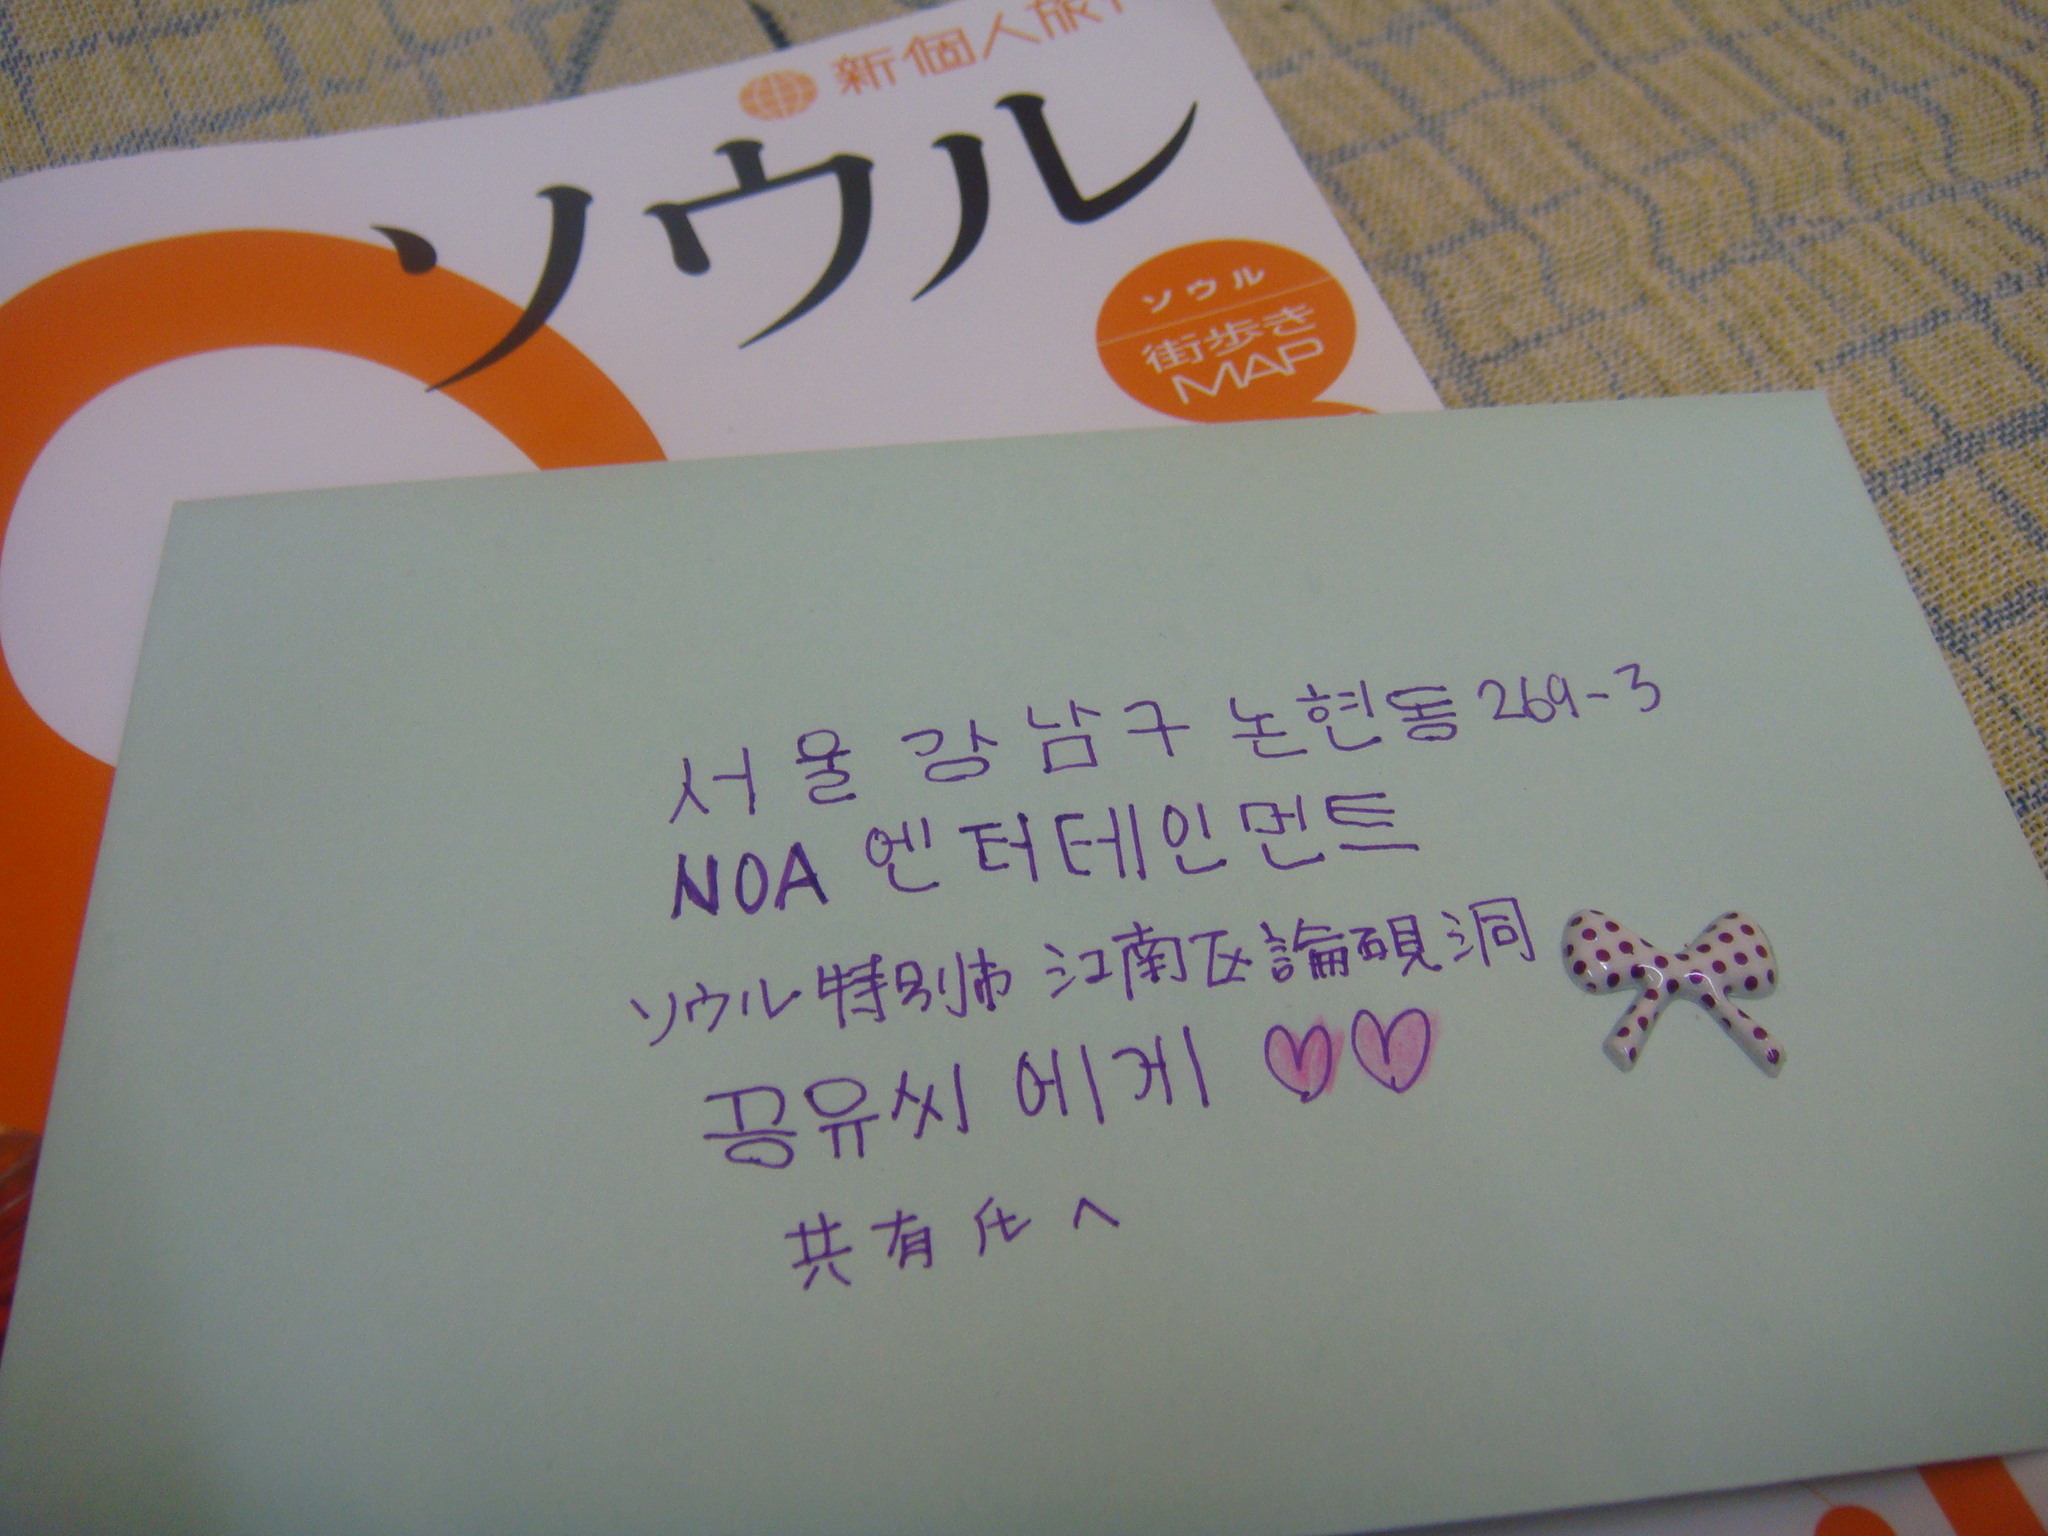 新個人旅
ソウル
ソウル
街歩き
MAP
서울 강남구 논현동 269-3
NOA 엔터테인먼트
ソウル特別市 江南区論硯洞
공유씨 에게 ♡♡
共有 氏 へ